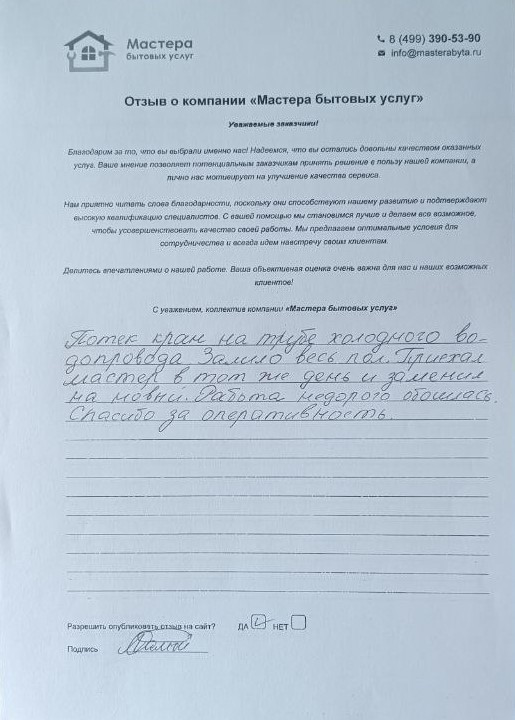 Мастера
бытовых услуг
8 (499) 390-53-90
info@masterabyta.ru
Отзыв о компании «Мастера бытовых услуг»
Уважаемые заказчики!
Благодарим за то, что вы выбрали именно нас! Надеемся, что вы остались довольны качеством оказанных
услуг. Ваше мнение позволяет потенциальным заказчикам принять решение в пользу нашей компании, а
лично нас мотивирует на улучшение качества сервиса.
Нам приятно читать слова благодарности, поскольку они способствуют нашему развитию и подтверждают
высокую квалификацию специалистов. С вашей помощью мы становимся лучше и делаем все возможное,
чтобы усовершенствовать качество своей работы. Мы предлагаем оптимальные условия для
сотрудничества и всегда идем навстречу своим клиентам.
Делитесь впечатлениями о нашей работе. Ваша объективная оценка очень важна для нас и наших возможных
клиентов!
С уважением, коллектив компании «Мастера бытовых услуг»
Потек кран на трубе холодного во-
допровода Залило весь пол. Приехал
мастер в тот же день и заменил
на новый. Работа недорого обошлась.
Спасибо за оперативность.
Разрешить опубликовать отзыв на сайт? ДА НЕТ
Подпись